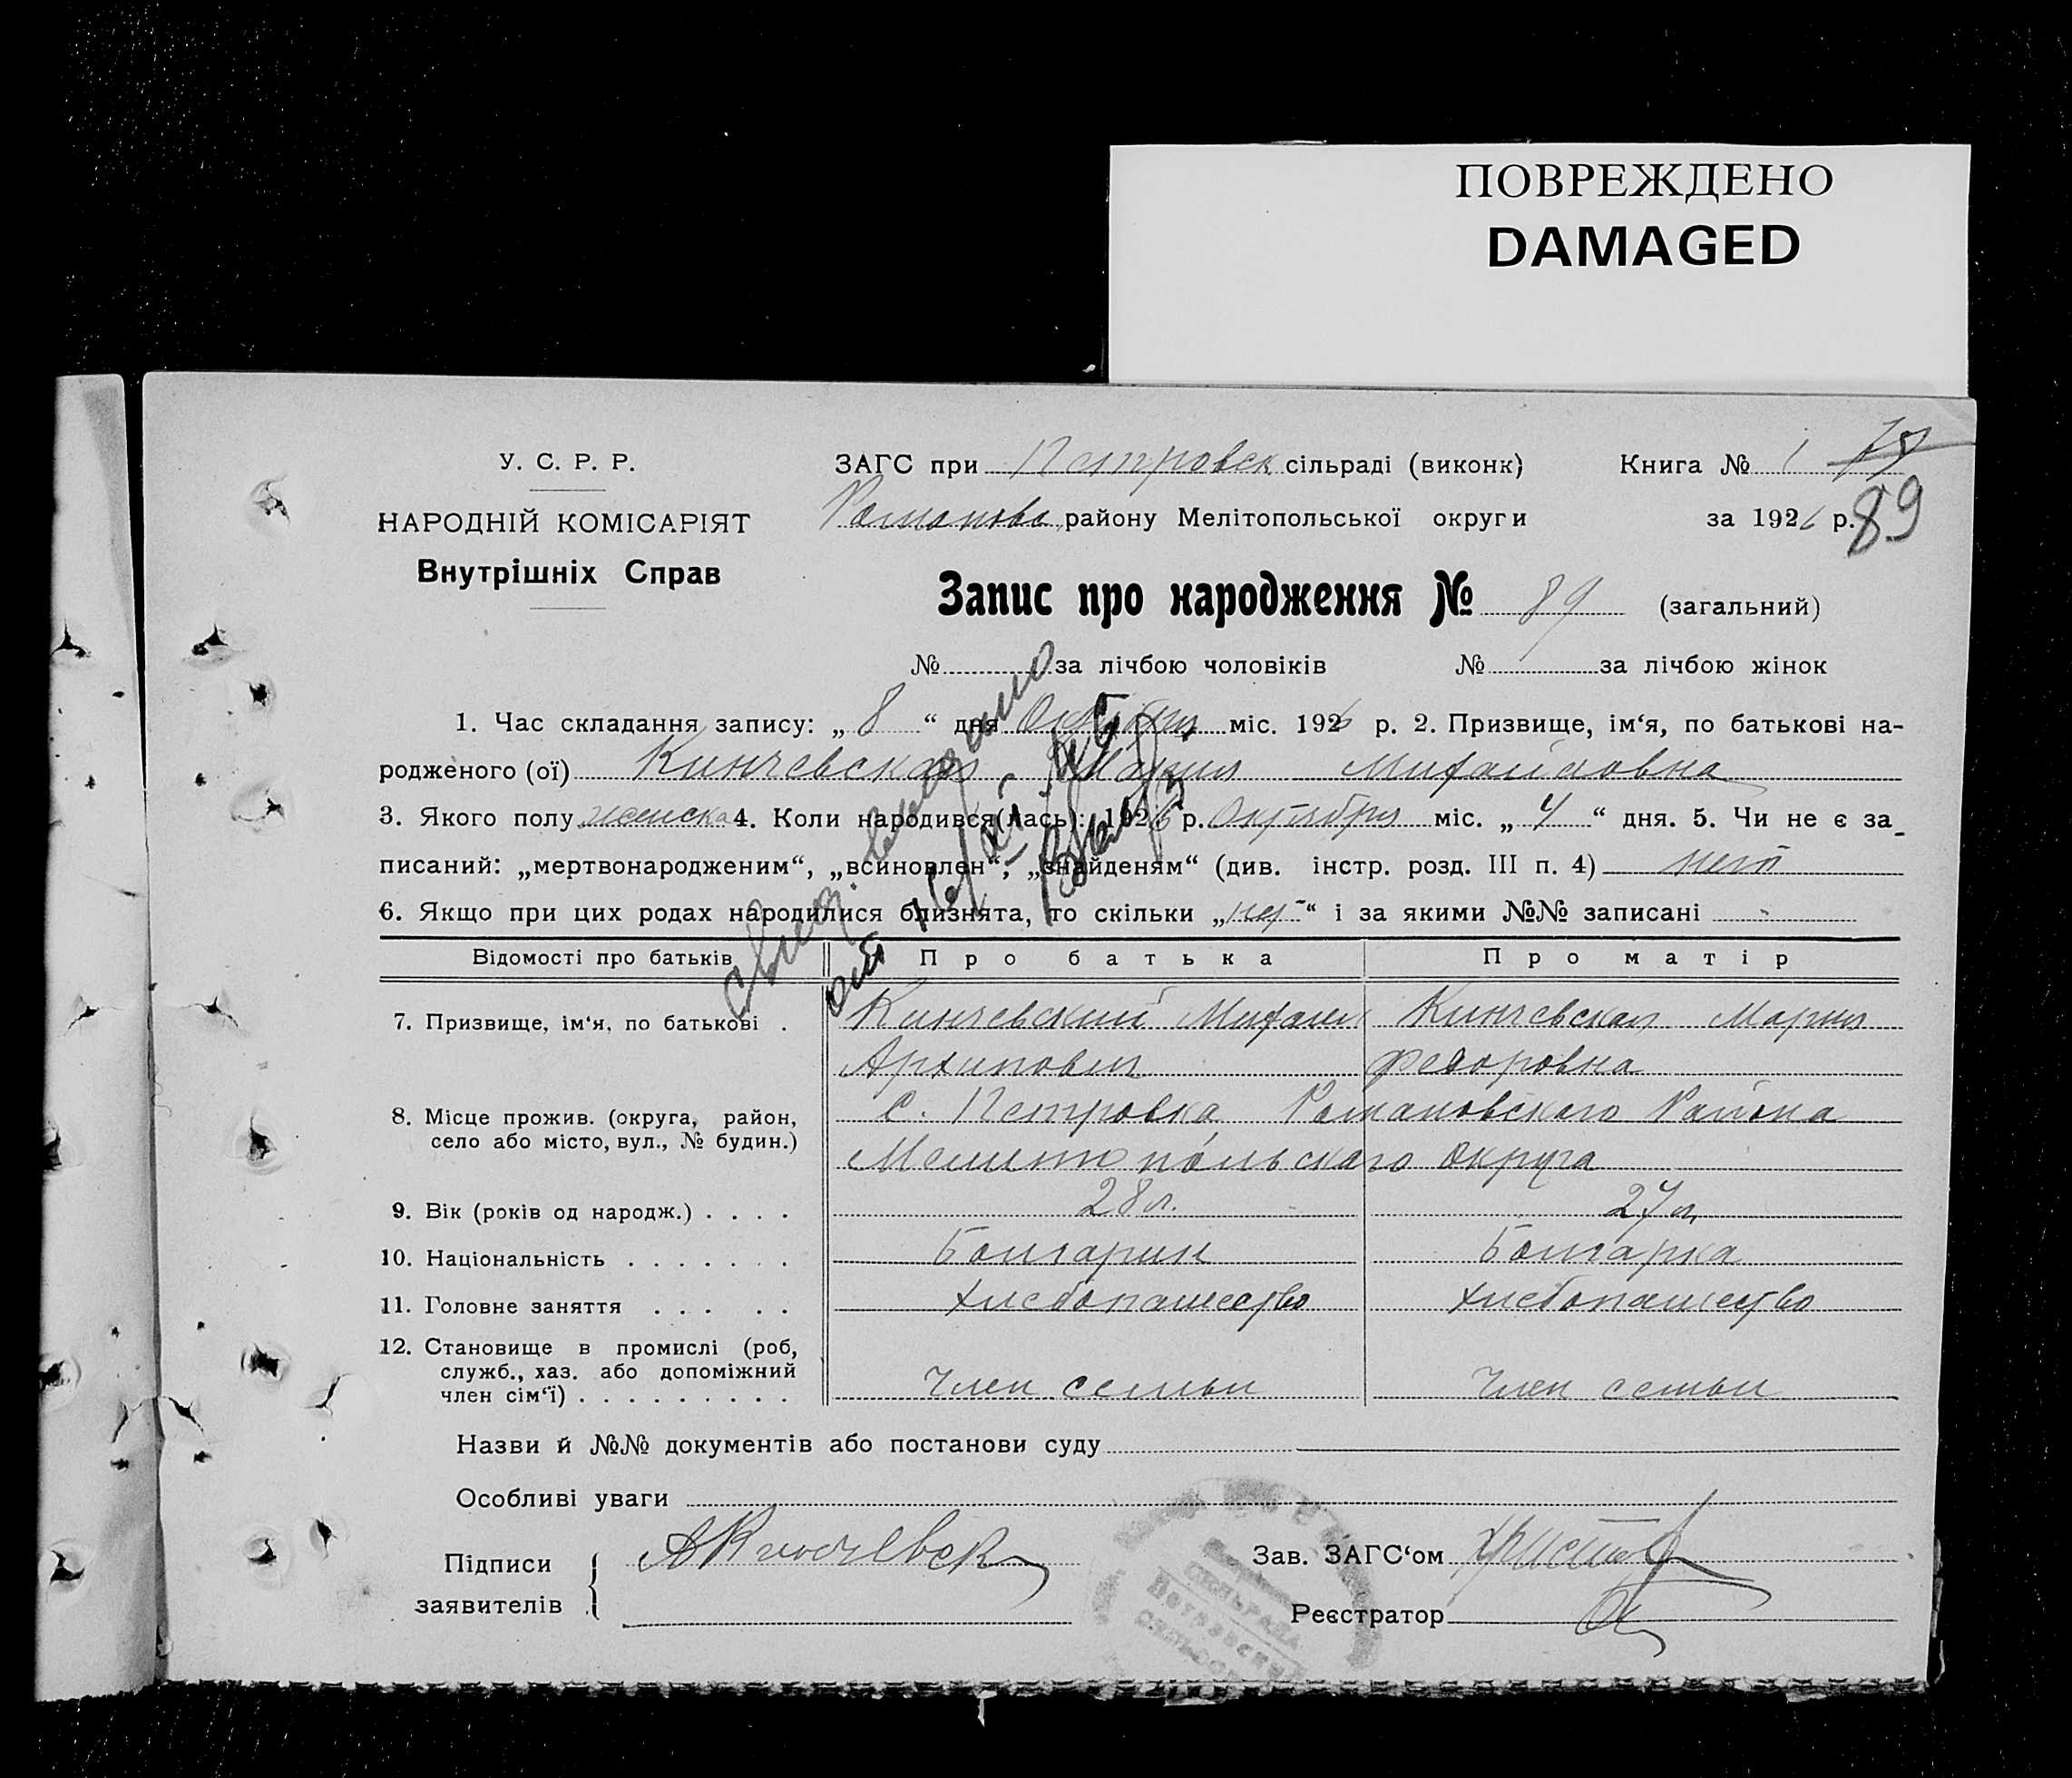 ПОВРЕЖДЕНО
DAMAGED
У. С. Р. Р.
НАРОДНІЙ КОМІСАРІЯТ
Внутрішніх Справ
ЗАГС при Петровск сільраді (виконк)
Книга № 1
Романовс. району Мелітопольської округи
за 1926 р.
89
Запис про народження № 89 (загальний)
№ за лічбою чоловіків № за лічбою жінок
1. Час складання запису: „ 8 “ дня Октября міс. 1926 р. 2. Призвище, ім‘я, по батькові на-
родженого (ої) Кинчевская Мария Михайловна
3. Якого полу женска 4. Коли народився(лась): 1926 р. Октября міс. „ 4 “ дня. 5. Чи не є за-
писаний: „мертвонародженим“, „всиновлен“, „знайденям“ (див. інстр. розд. III п. 4) нет
6. Якщо при цих родах народилися близнята, то скільки „ нет “ і за якими №№ записані -
Відомості про батьків Про батька Про матір
7. Призвище, ім‘я, по батькові . Кинчевский Михаил Кинчевская Мария
Архипович Федоровна
8. Місце прожив. (округа, район, село або місто, вул., № будин.) с. Петровка Романовского Района
Мелитопольскаго округа
9. Вік (років од народж.) . . . . 28 л. 27 л.
10. Національність . . . . . . . Болгарин Болгарка
11. Головне заняття . . . . . Хлебопашество Хлебопашество
12. Становище в промислі (роб, служб., хаз. або допоміжний член сім‘ї) . . . . . . . . . Член семьи Член семьи
Назви й №№ документів або постанови суду
Особливі уваги
Підписи
заявителів
Зав. ЗАГС‘ом Христов
Реєстратор